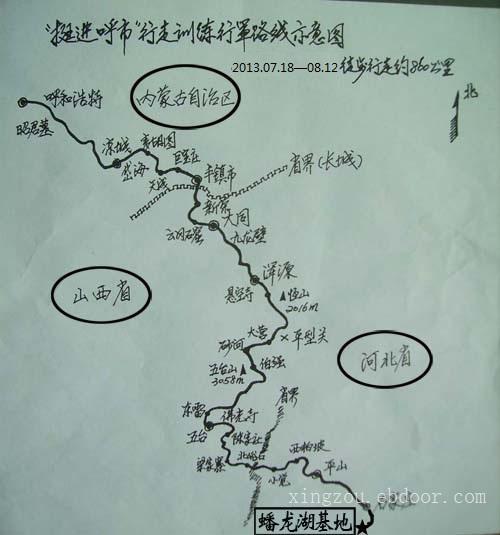 "挺进呼市"行走训练行军路线示意图
2013.07.18—08.12 徒步行走约860公里
北
呼和浩特
内蒙古自治区
昭君墓
凉城
岱海
省界(长城)
丰镇市
新荣
大同
云冈石窟
九龙壁
浑源
悬空寺
恒山
2016m
山西省
大营
平型关
砂河
河北省
伯强
五台山
3058m
省界
东雷
佛光寺
五台
陈家庄
梁家寨
西柏坡
平山
小觉
蟠龙湖基地
xingzou.ebdoor.com